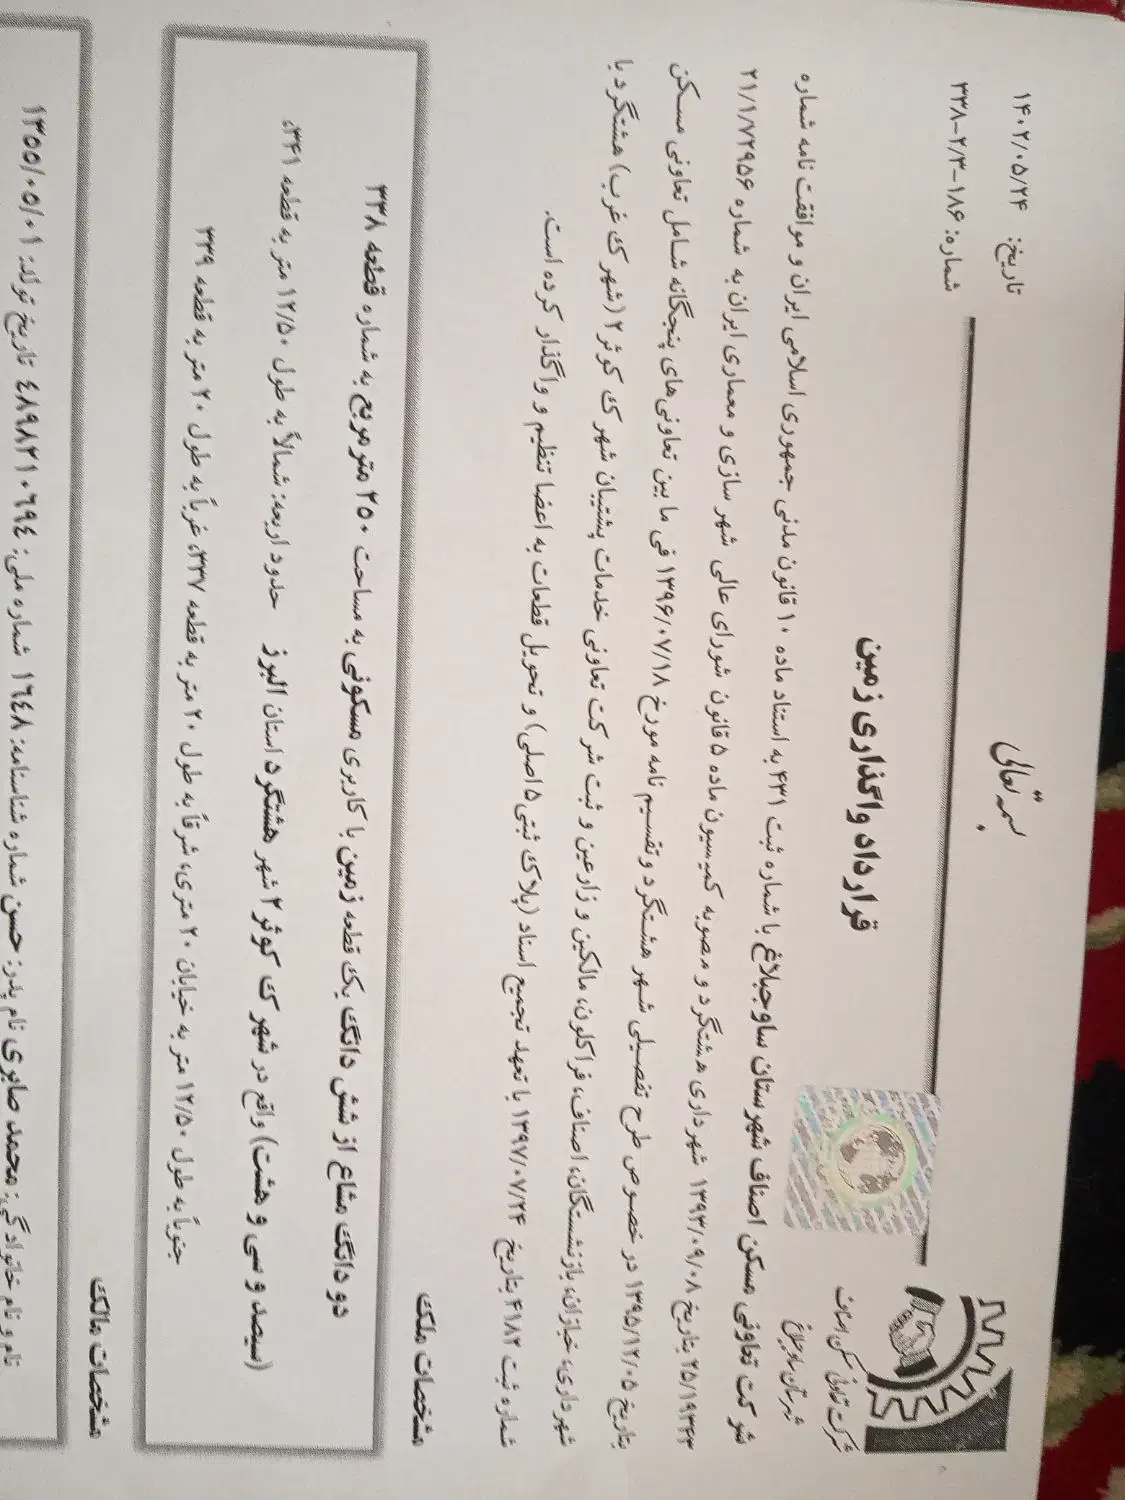 بسمه تعالی
تاریخ: ۱۴۰۲/۰۵/۲۴
شماره: ۱۸۶-۲/۳-۳۳۸
شرکت تعاونی مسکن اصناف
شهرستان ساوجبلاغ
قرارداد واگذاری زمین
شرکت تعاونی مسکن اصناف شهرستان ساوجبلاغ با شماره ثبت ۴۳۱ به استناد ماده ۱۰ قانون مدنی جمهوری اسلامی ایران و موافقت نامه شماره
۲۵/۱۹۳۴۳ بتاریخ ۱۳۹۳/۰۹/۰۸ شهرداری هشتگرد و مصوبه کمیسیون ماده ۵ قانون شورای عالی شهر سازی و معماری ایران به شماره ۲۱/۱/۷۲۹۵۶
بتاریخ ۱۳۹۵/۱۲/۰۵ در خصوص طرح تفصیلی شهر هشتگرد و تقسیم نامه مورخ ۱۳۹۶/۰۷/۱۸ فی ما بین تعاونی‌های پنجگانه شامل تعاونی مسکن
شهرداری، خبازان، بازنشستگان، اصناف، فراکلون، مالکین و زارعین و ثبت شرکت تعاونی خدمات پشتیبان شهرک کوثر ۲ (شهرک غرب) هشتگرد با
شماره ثبت ۴۱۸۲ بتاریخ ۱۳۹۷/۰۷/۲۴ با تعهد تجمیع اسناد (پلاک ثبتی ۵ اصلی) و تحویل قطعات به اعضا تنظیم و واگذار کرده است.
مشخصات ملک
دو دانگ مشاع از شش دانگ یک قطعه زمین با کاربری مسکونی به مساحت ۲۵۰ متر مربع به شماره قطعه ۳۳۸
(سیصد و سی و هشت) واقع در شهرک کوثر ۲ شهر هشتگرد استان البرز حدود اربعه: شمالاً به طول ۱۲/۵۰ متر به قطعه ۳۴۱،
جنوباً به طول ۱۲/۵۰ متر به خیابان ۲۰ متری، شرقاً به طول ۲۰ متر به قطعه ۳۳۷، غرباً به طول ۲۰ متر به قطعه ۳۳۹
مشخصات مالک
نام و نام خانوادگی: محمد صابری نام پدر: حسن شماره شناسنامه: ۱۶٤۸ شماره ملی: ٤۸۹۸۲۱۰٦۹٤ تاریخ تولد: ۱۳۵۵/۰۵/۰۱